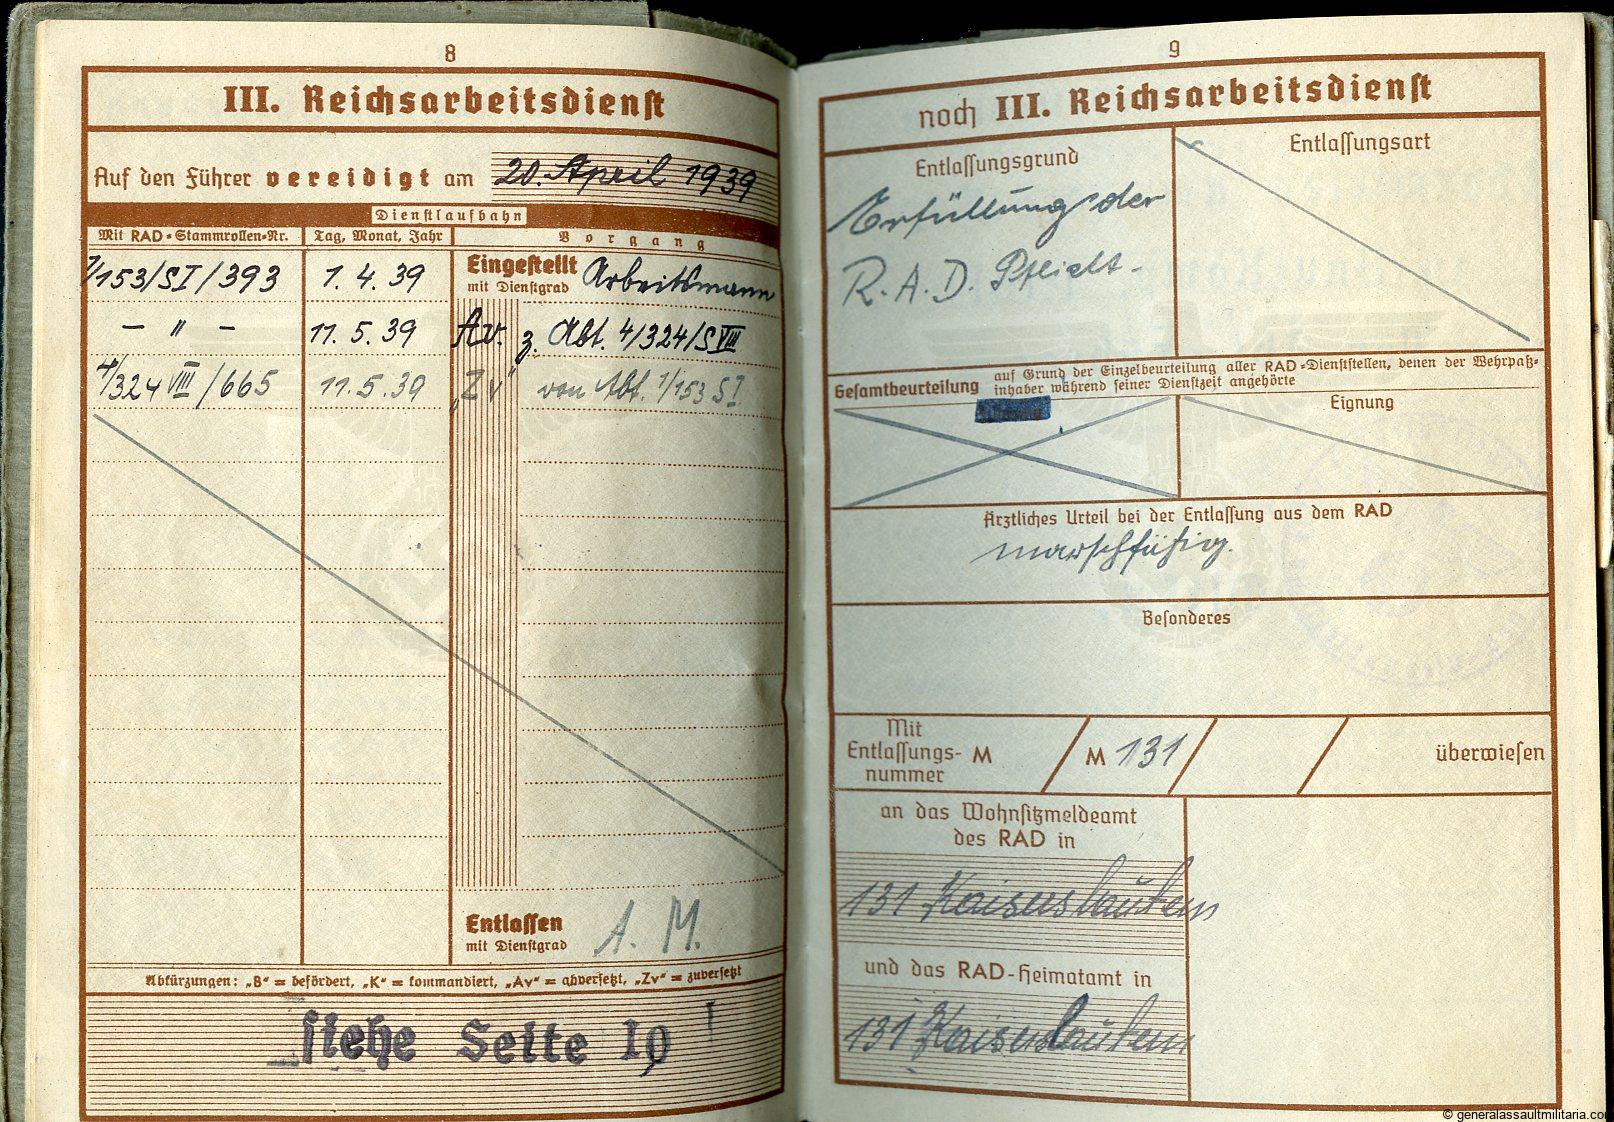 8
III. Reichsarbeitsdienst
Auf den Führer vereidigt am 20. April 1939
Dienstlaufbahn
Mit RAD-Stammrollen-Nr. Tag, Monat, Jahr Vorgang
1/153/SI/393 1. 4. 39 Eingestellt mit Dienstgrad Arbeitsmann
– " – 11. 5. 39 Av. z. Abt. 4/324/S VIII
4/324 VIII/665 11.5.39 „Zv" von Abt. 1/153 S I
Entlassen
mit Dienstgrad A. M.
Abkürzungen: „B“ = befördert, „K“ = kommandiert, „Av“ = abversetzt, „Zv“ = zuversetzt
siehe Seite 10
9
noch III. Reichsarbeitsdienst
Entlassungsgrund Entlassungsart
Erfüllung der
R. A. D. Pflicht.
Gesamtbeurteilung auf Grund der Einzelbeurteilung aller RAD-Dienststellen, denen der Wehrpaß-
inhaber während seiner Dienstzeit angehörte
Eignung
Ärztliches Urteil bei der Entlassung aus dem RAD
marschfähig.
Besonderes
Mit
Entlassungs- M M 131 überwiesen
nummer
an das Wohnsitzmeldeamt
des RAD in
131 Kaiserslautern
und das RAD-Heimatamt in
131 Kaiserslautern
© generalassaultmilitaria.com